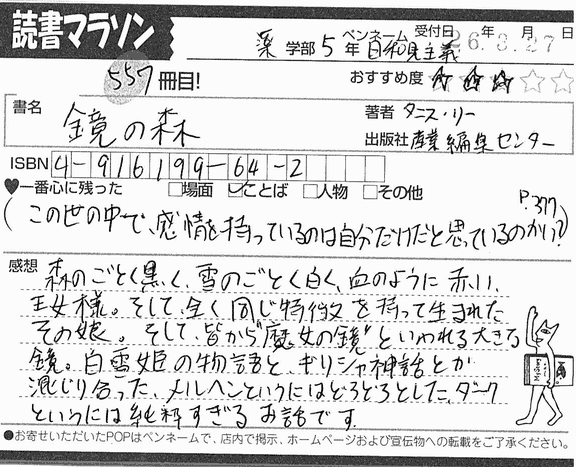 読書マラソン
薬 学部 5 年 ペンネーム 日和見主義 受付日 26.8.27 年 月 日
557 冊目!
おすすめ度 ★★★☆☆
書名 鏡の森
著者 タニス・リー
出版社 産業編集センター
ISBN 4-916199-64-2
♥一番心に残った □場面 ☑ことば □人物 □その他
(この世の中で、感情を持っているのは自分だけだと思っているのかい?) P.377
感想 森のごとく黒く、雪のごとく白く、血のように赤い、
王女様。そして、全く同じ特徴を持って生まれた
その娘。そして、皆から"魔女の鏡"といわれる大きな
鏡。白雪姫の物語と、ギリシャ神話とが
混じり合った、メルヘンというにはどろどろとした、ダーク
というには純粋すぎるお話です。
●お寄せいただいたPOPはペンネームで、店内で掲示、ホームページおよび宣伝物への転載をご了承ください。